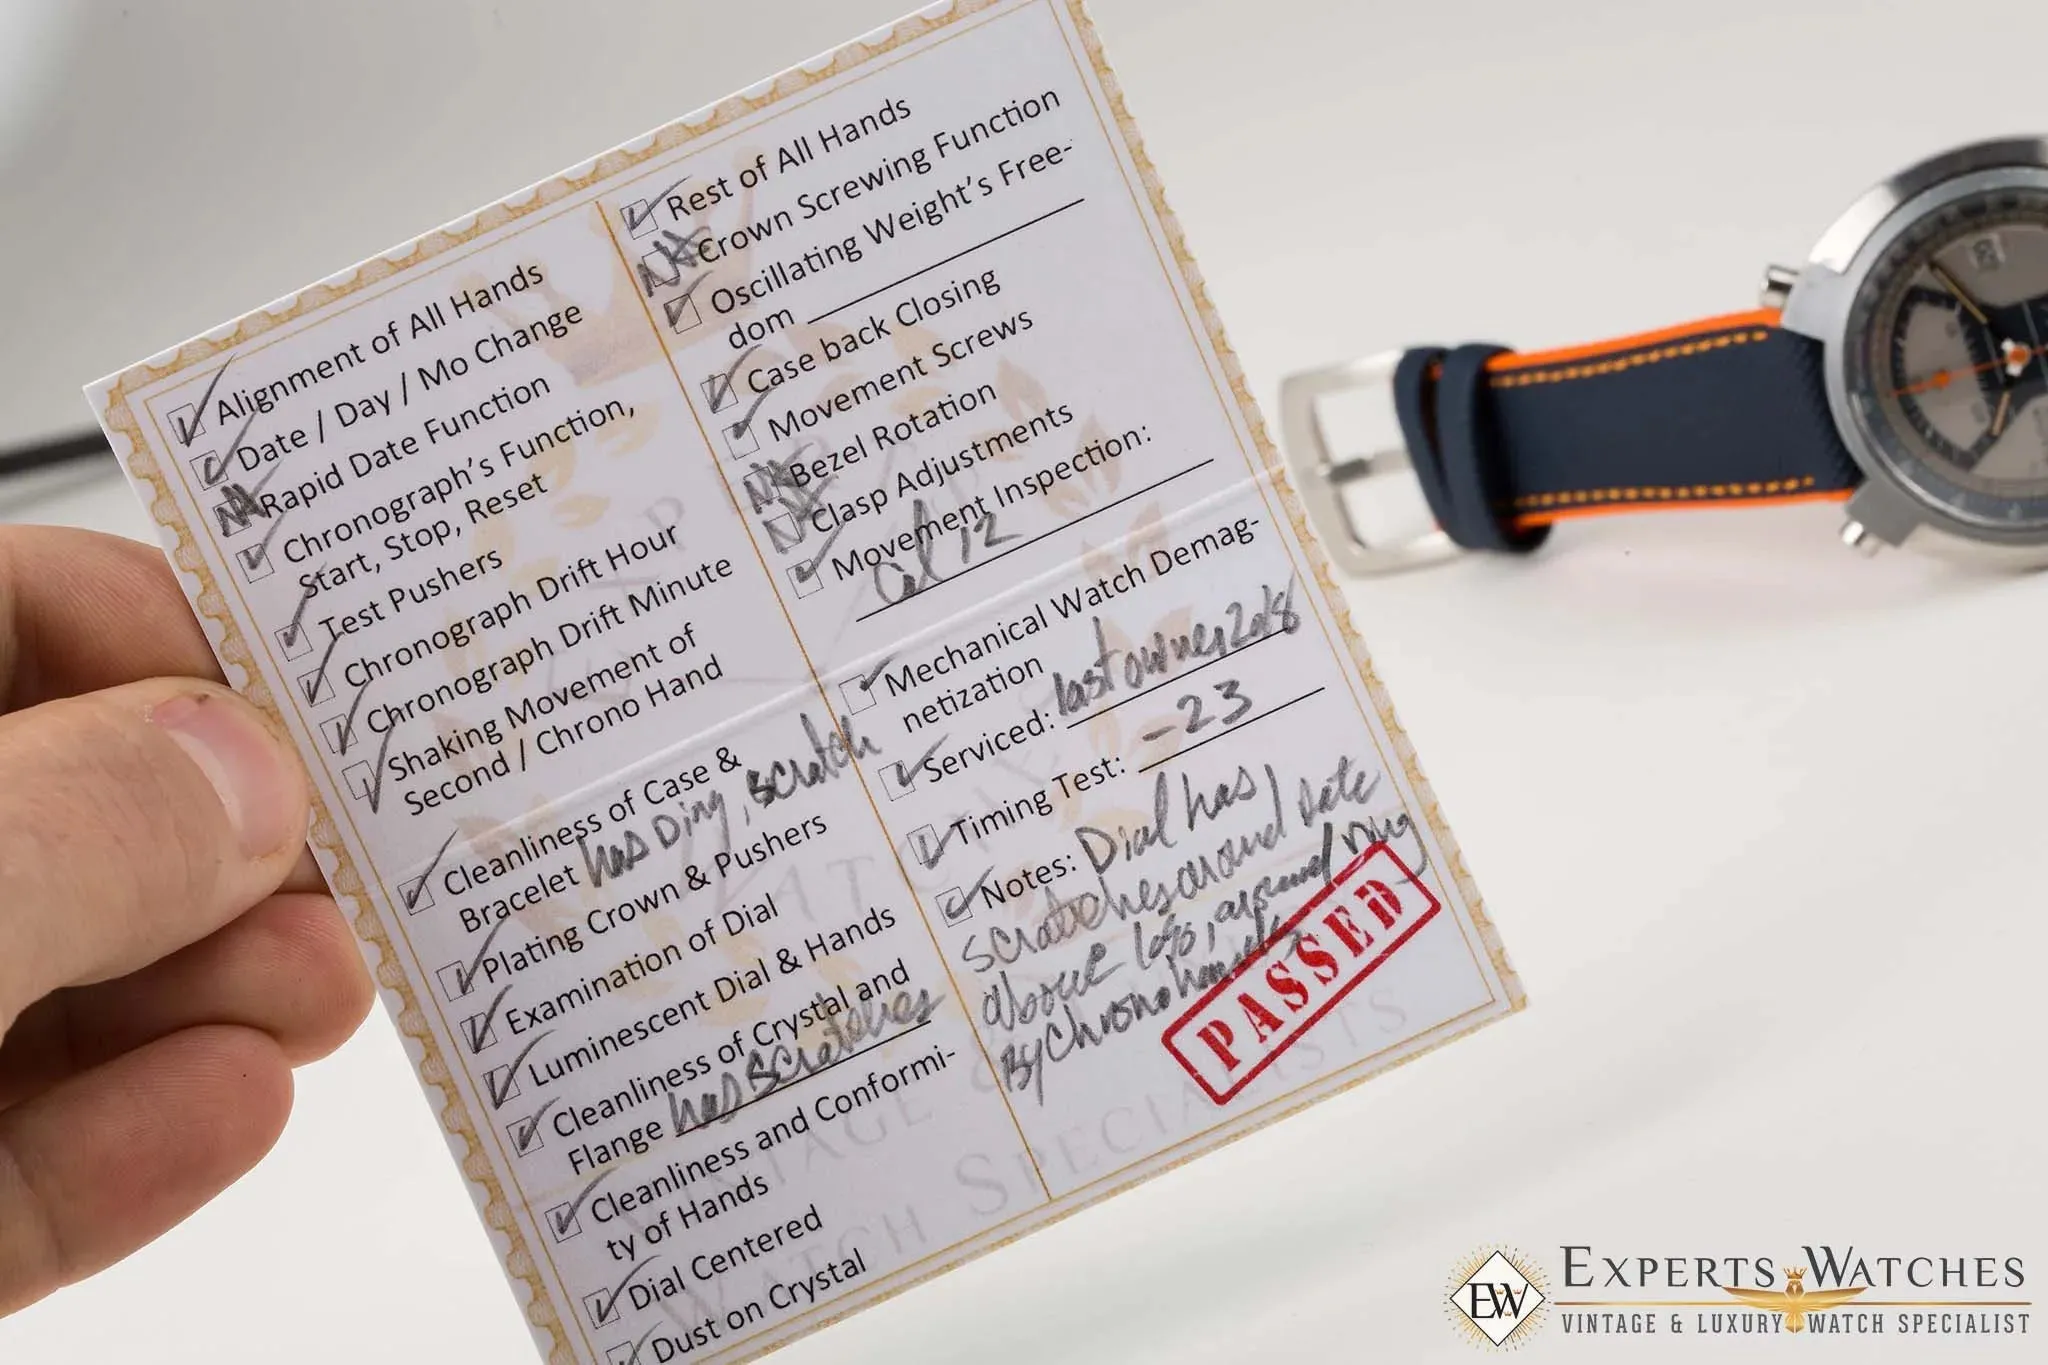 Alignment of All Hands
Date / Day / Mo Change
NA Rapid Date Function
Chronograph's Function,
Start, Stop, Reset
Test Pushers
Chronograph Drift Hour
Chronograph Drift Minute
Shaking Movement of
Second / Chrono Hand
Cleanliness of Case &
Bracelet has Ding, scratch
Plating Crown & Pushers
Examination of Dial
Luminescent Dial & Hands
Cleanliness of Crystal and
Flange has scratches
Cleanliness and Conformi-
ty of Hands
Dial Centered
Dust on Crystal
Rest of All Hands
NA Crown Screwing Function
Oscillating Weight's Free-
dom
Case back Closing
Movement Screws
NA Bezel Rotation
NA Clasp Adjustments
Movement Inspection:
Cal 12
Mechanical Watch Demag-
netization
Serviced: last owner 2018
Timing Test: -23
Notes: Dial has
scratches around Date
above logo, around ring
By Chrono hands
PASSED
EXPERTS WATCHES
VINTAGE & LUXURY WATCH SPECIALISTS
EW
EXPERTS WATCHES
VINTAGE & LUXURY WATCH SPECIALIST